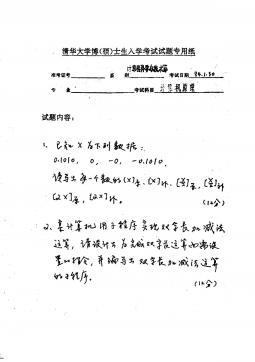 清华大学博(硕)士生入学考试试题专用纸
计算机科学与技术系
准考证号 系 别 考试日期 94.1.30
专 业 考试科目 计算机原理
试题内容:
1、已知 X 为下列数据:
0.1010, 0, -0, -0.1010.
请写出每一个数的[X]原、[X]补、
[2X]原、[2X]补。 (12分)
2、某计算机用子程序实现双字长加减法
运算,请设计出为完成双字长运算而需设
置的指令,并编写出双字长加减法运算
的子程序。 (12分)